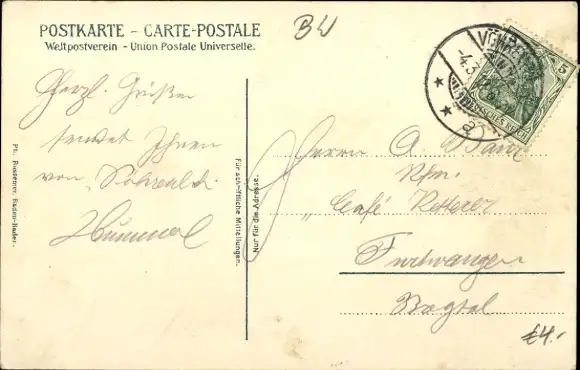 POSTKARTE – CARTE-POSTALE
Weltpostverein – Union Postale Universelle.
B4
VÖHREN
-4.3.
a
5
DEUTSCHES REICH
Herzl. Grüße
sendet Ihnen
von
Hummel
Ph. Rossemer, Baden-Baden.
Für schriftliche Mitteilungen.
Nur für die Adresse.
Herrn A.
Kfm.
„Café Ketterer
Furtwangen
€4.-